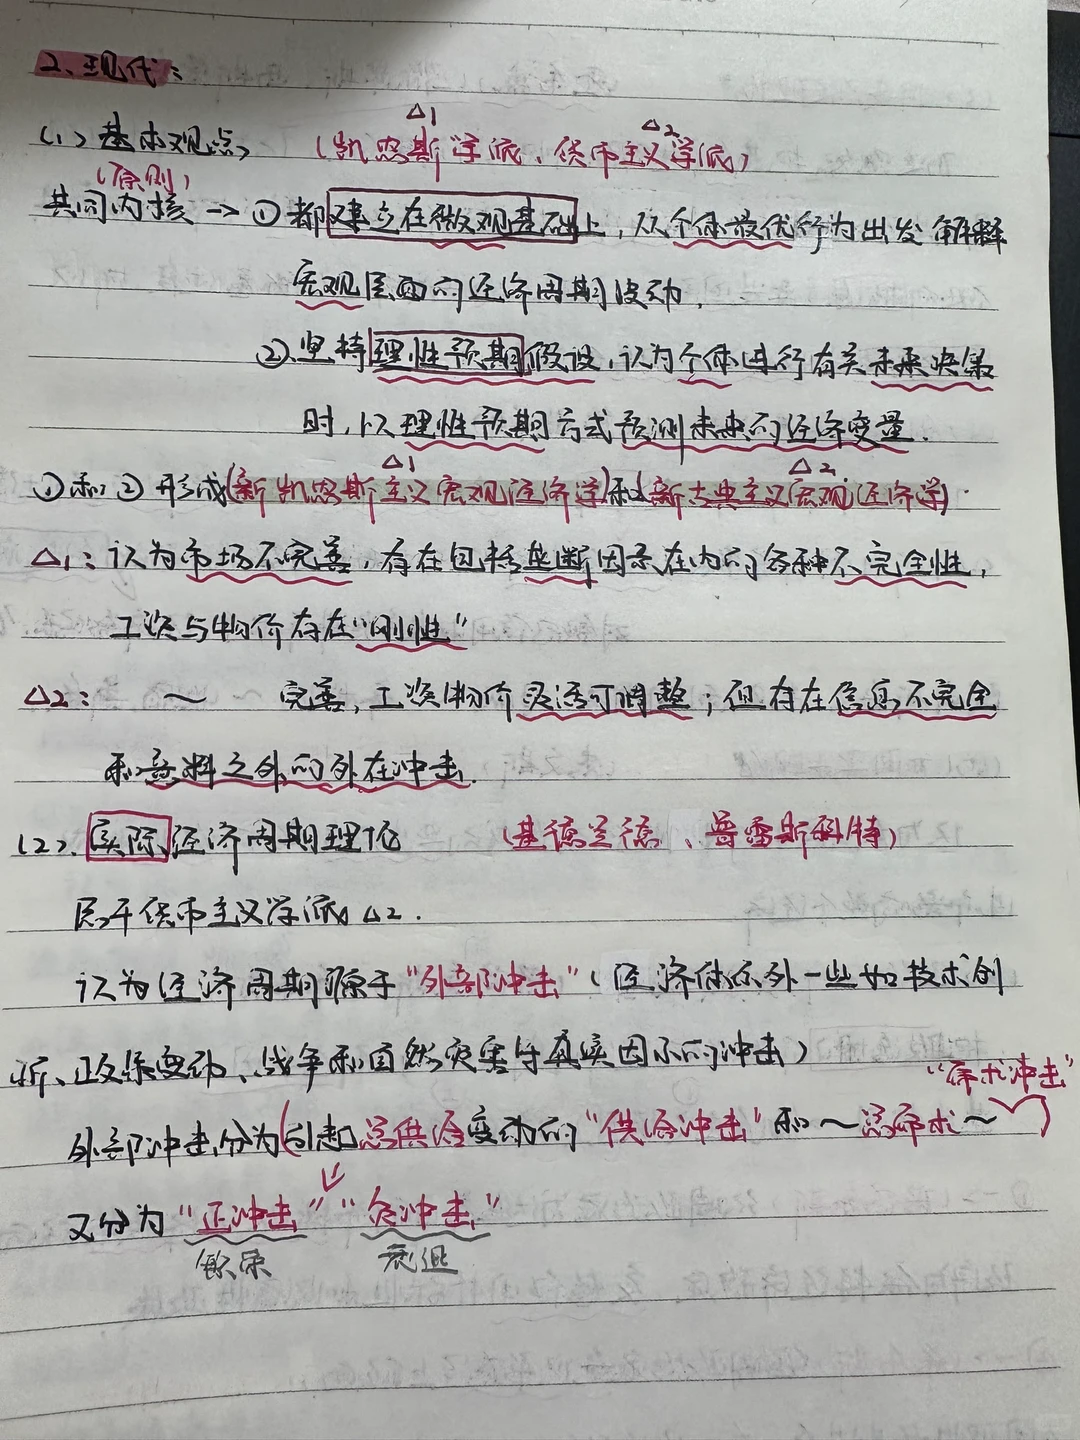 2、现代：
△1 △2
(1) 基本观点 (凯恩斯学派、货币主义学派)
(原则)
共同内核 → ① 都建立在微观基础上，从个体最优行为出发解释
宏观层面的经济周期波动．
②、坚持理性预期假设，认为个体进行有关未来决策
时，以理性预期方式预测未来的经济变量．
△1 △2
①和②形成(新凯恩斯主义宏观经济学)和(新古典主义宏观经济学)．
△1：认为市场不完善，存在包括垄断因素在内的各种不完全性，
工资与物价存在“刚性”
△2： ～ 完善，工资物价灵活可调整；但存在信息不完全
和意料之外的外在冲击．
(2)、实际经济周期理论 (基德兰德、普雷斯科特)
属于货币主义学派△2．
认为经济周期源于“外部冲击”(经济体系外一些如技术创
新、政策变动、战争和自然灾害等真实因素的冲击)
“需求冲击”
外部冲击分为(引起总供给变动的“供给冲击”和～总需求～
又分为“正冲击”“负冲击”
繁荣 衰退